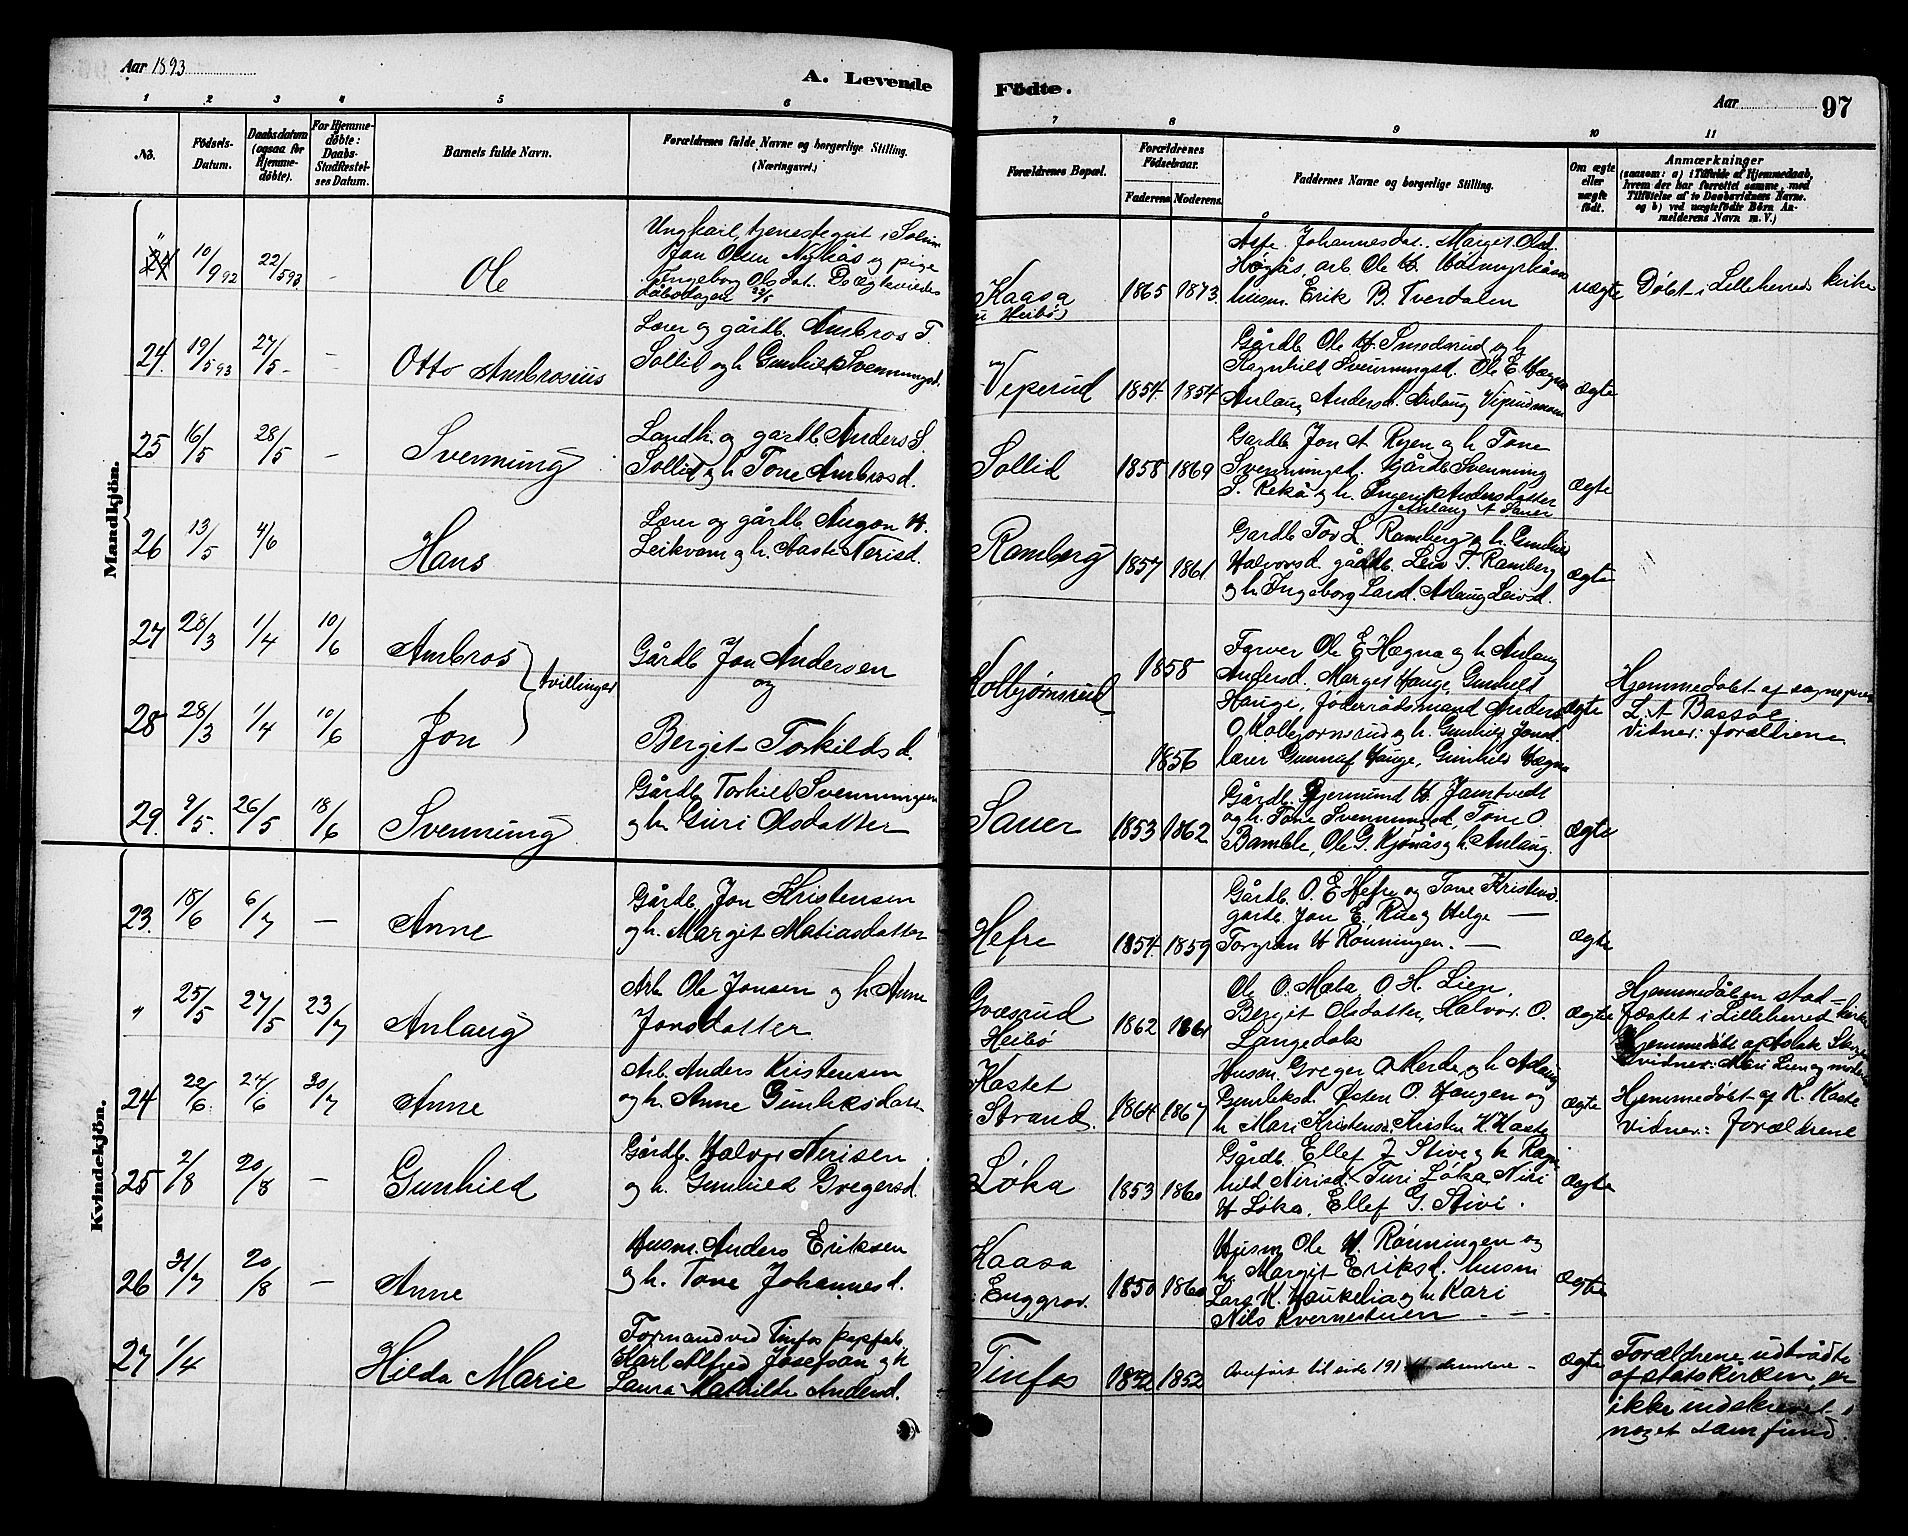 Aar 1893
A. Levende
Födte.
Aar
97
1 2 3 4 5 6 7 8 9 10 11
No.
Födsels-
Datum.
Daabsdatum
(ogsaa for
Hjemme-
døbte).
For Hjemme-
døbte:
Daabs-
Stadfæstel-
ses Datum.
Barnets fulde Navn.
Forældrenes fulde Navne og borgerlige Stilling.
(Næringsvei.)
Forældrenes Bopæl.
Forældrenes
Födselsaar.
Faderens. Moderens.
Faddernes Navne og borgerlige Stilling.
Om ægte
eller
uægte
födt.
Anmærkninger
(saasom: a) i Tilfælde af Hjemmedaab,
hvem der har forrettet samme, med
Tilföielse af to Daabsvidners Navne.
og b) ved uægtefödte Börn An-
melderens Navn m. V.)
Mandkjön.
10/9 92 22/5 93 - Ole
Ungkarl, tjenestegut i Solum
Jon Olsen Nyhås og pige
Ingeborg Olsdat. De ægtevieldes
Dåbsdagen 22/5
Kaasa
u Heibø
1865 1873.
Aase Johannesdat. Marget Olsd.
Høgås, arb. Ole H.
husm. Erik B. Tverdalen
uægte
Døbt i Lilleherred kirke
24. 19/5 93 27/5 - - Otto Ambrosius
Lærer og gårdb. Ambros T.
Sollid og h. Gunhild Svenningsd.
Veperud
1854. 1854
Gårdb. Ole H. Smedsrud og h
Ragnhild Svenningsd. Ole E. Hægna
Anlaug Andersd. Anlaug Viperudmoen
ægte
25 16/5 28/5 - Svenning
Landh. og gardb. Anders S.
Sollid og h. Tone Ambrosd.
Sollid
1858 1869
Gardb Jon A Ryen og h. Tone
Svenningsd. Gårdb Svenning
S. Rekå og h. Ingerik Andersdatter
Anlaug A Sauer
ægte
26 13/5 4/6 Hans
Lærer og gårdb. Augon H.
Leikvam og h. Aaste Nerisd.
Ramberg
1857 1861
Gardb Tov L. Ramberg og h. Gunhild
Halvorsd. gårdb. Leiv T. Ramberg
og h. Ingeborg Larsd. Aslaug Leivsd.
ægte
27 28/3 1/4 10/6 Ambros
28 28/3 1/4 10/6 Jon
tvillinger
Gårdb. Jon Andersen
og
Bergit Torkildsd.
Kolbjørnsrud
1858
1856
Farver Ole E Hægna og h Anlaug
Andersd., Marget Hauge, Gunhild
Hauge, føderådsmand Anders
O Kolbjornsrud og h. Gunhild Jonsd.
lærer Gunnuf Hauge, Gunhild Hægna
ægte
Hjemmedøbt af sogneprest
L. A Bassøe
Vidner: forældrene
29. 9/5. 26/5 18/6 Svenning
Gårdb Torkild Svenningsen
og h. Guri Olsdatter
Sauer
1853 1862
Gårdb. Gjermund H. Jamtvedt
og h. Tone Svenningsd, Tone O
Bamble, Ole G. Kjønås og h. Anlaug.
ægte
Kvindekjön.
23. 18/6 6/7 - Anne
Gårdb Jon Kristensen
og h. Margit Matiasdatter
Hefre
1854. 1859
Gårdb. O. E Hefre og Tone Kristensd.
gardb. Jon E. Rue og Helge —
Torgrim H Rønningen. —
ægte
" 25/5 27/5 23/7 Anlaug
Arb Ole Jonsen og h Anne
Jonsdatter
Gvæsrud
Heibø
1862 1861
Ole O. Mæla O. H. Lien,
Bergit Olsdatter, Halvor O.
Langedok
ægte
Hjemmedåben stad-
fæstet i Lilleherred kirke
Hjemmedøbt af Aslak
vidner: Mari Lien og moderen
24 22/6. 24/6 30/7 Anne
Arb. Anders Kristensen
og h. Anne Gunleksdatt
Kastet
Strand.
1864 1867
Husm Greger O Merde og h Aslaug
Gunleksd. Østen O. Haugen og
h Mari Kristensd. Kristen K Kaste
ægte
Hjemmedøbt af K. Kaste
Vidner: forældrene
25 2/8 20/8 - Gunhild
Gårdb. Halvor Nerisen
og h. Gunhild Gregersd.
Løka
1853 1860
Gårdb. Ellef J Stive og h Ragn-
hild Nerisd. Turi Løka Niri
H Løka, Ellef G. Stivi.
ægte
26 31/7 20/8 - Anne
Husm. Anders Eriksen
og h. Tone Johannesd.
Kaasa
Enggrav.
1850 1860
Husm Ole H. Rønningen og
h. Margit Eriksd. husm
Lars K. Haukelia og h Kari
Nils Kvernestuen —
ægte
27 1/4 Hilda Marie
Formand ved Tinfos papfab.
Karl Alfred Josefsen og h
Laura Mathilde Andersd.
Tinfos
1852
Overført til side 191
ægte
Forældrene udtrådte
af statskirken, er
ikke indskrevet i
noget samfund.